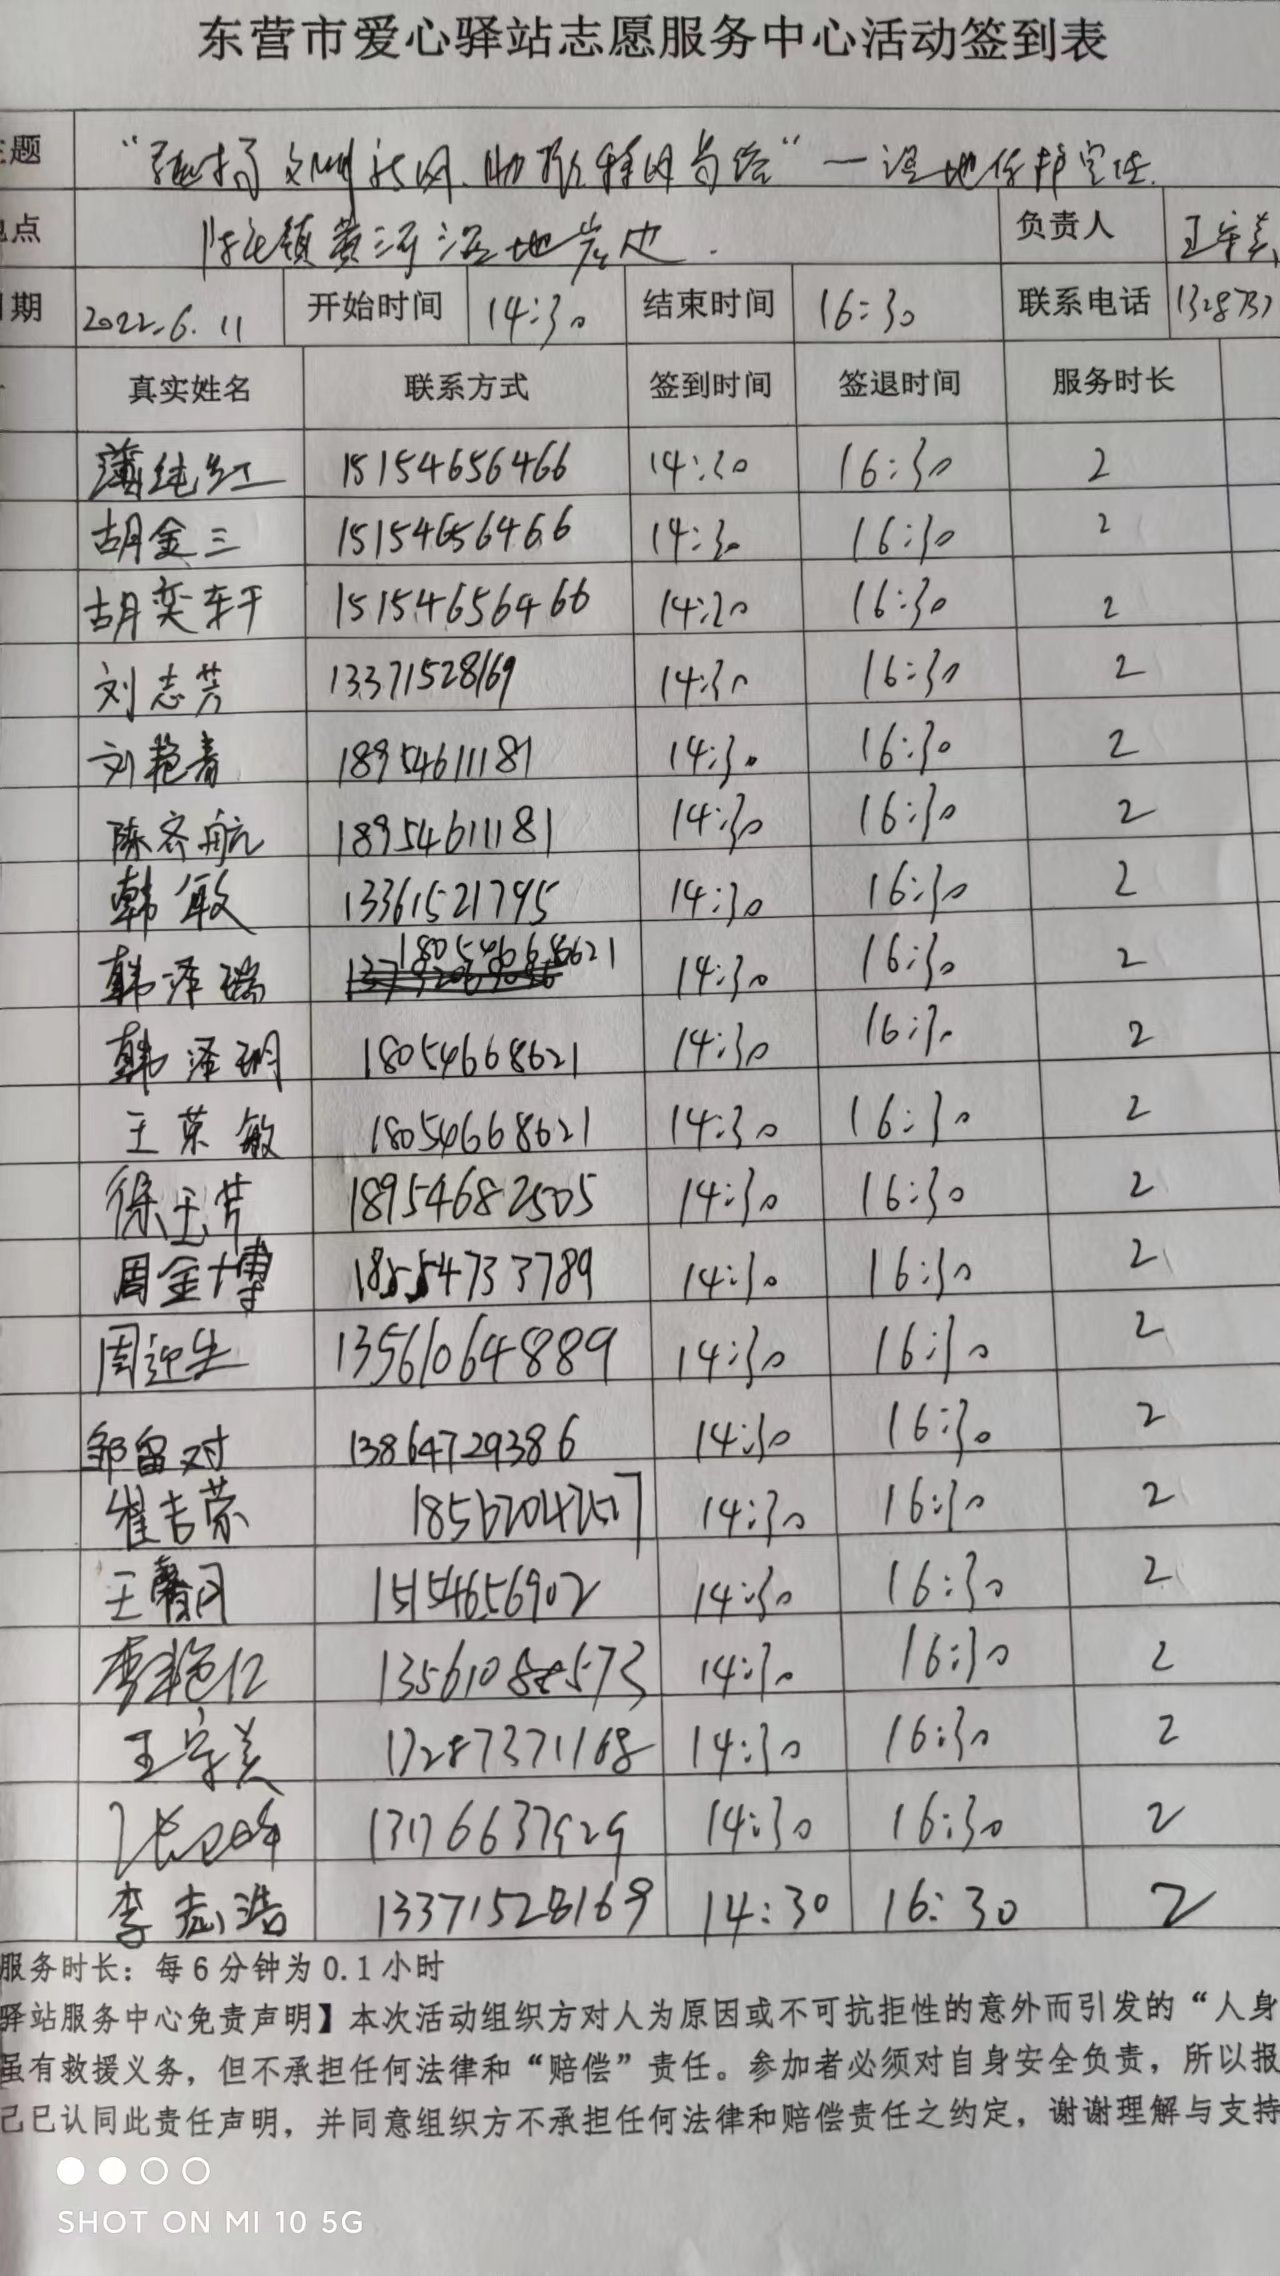 东营市爱心驿站志愿服务中心活动签到表
主题 湿地保护宣传
地点 黄河湿地岸边 负责人 王守美
日期 2022.6.11 开始时间 14:30 结束时间 16:30 联系电话 1328737
真实姓名 联系方式 签到时间 签退时间 服务时长
蒲纯红 15154656466 14:30 16:30 2
胡金三 15154656466 14:30 16:30 2
胡奕轩 15154656466 14:30 16:30 2
刘志芳 13371528169 14:30 16:30 2
刘艳青 18954611181 14:30 16:30 2
陈齐航 18954611181 14:30 16:30 2
韩敏 13361521795 14:30 16:30 2
韩泽瑞 18054668621 14:30 16:30 2
韩泽玥 18054668621 14:30 16:30 2
王荣敏 18054668621 14:30 16:30 2
徐玉芳 18954682505 14:30 16:30 2
周金博 18554733789 14:30 16:30 2
周迎生 13561064889 14:30 16:30 2
邹留对 13864729386 14:30 16:30 2
崔吉荣 18562042517 14:30 16:30 2
王馨月 15154656902 14:30 16:30 2
李艳红 13561088573 14:30 16:30 2
王守美 13287371168 14:30 16:30 2
13176637929 14:30 16:30 2
李志浩 13371528169 14:30 16:30 2
服务时长：每6分钟为0.1小时
驿站服务中心免责声明】本次活动组织方对人为原因或不可抗拒性的意外而引发的“人身
虽有救援义务，但不承担任何法律和“赔偿”责任。参加者必须对自身安全负责，所以报
己已认同此责任声明，并同意组织方不承担任何法律和赔偿责任之约定，谢谢理解与支持
SHOT ON MI 10 5G